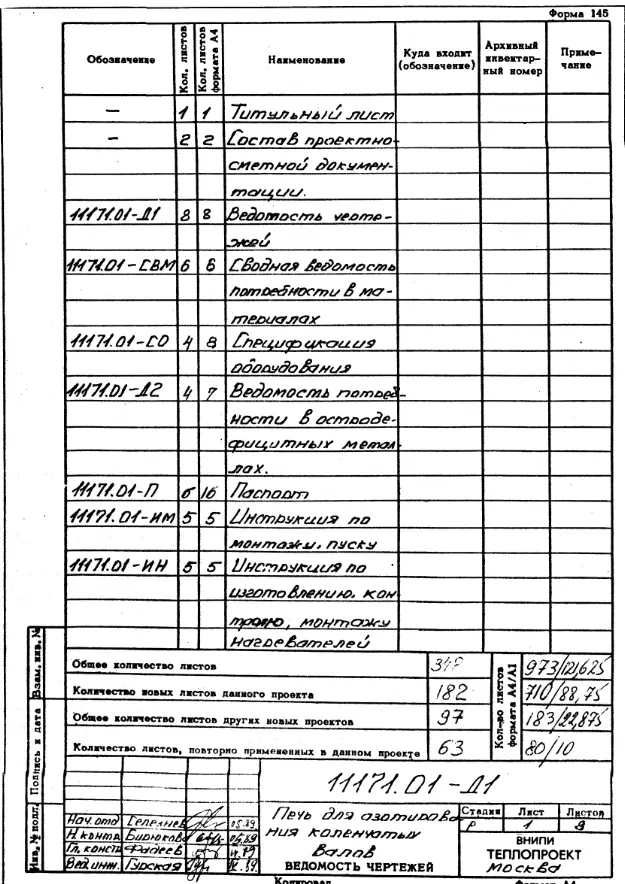 Форма 145
Обозначение Кол. листов Кол. листов формата А4 Наименование Куда входит (обозначение) Архивный инвентарный номер Примечание
— 1 1 Титульный лист
— 2 2 Состав проектно-
сметной докумен-
тации.
11171.01-Д1 8 8 Ведомость черте-
жей
11171.01-СВМ 6 6 Сводная ведомость
потребности в ма-
териалах
11171.01-СО 4 8 Спецификация
оборудования
11171.01-Д2 4 7 Ведомость потреб-
ности в остроде-
фицитных метал-
лах.
11171.01-П 6 16 Паспорт
11171.01-ИМ 5 5 Инструкция по
монтажу, пуску
11171.01-ИН 5 5 Инструкция по
изготовлению, кон
тролю, монтажу
нагревателей
Общее количество листов Кол-во листов формата А4/А1 973/121,625
Количество новых листов данного проекта 182 710/88,75
Общее количество листов других новых проектов 97 183/22,875
Количество листов, повторно примененных в данном проекте 63 80/10
Взам. инв. №
Подпись и дата
Инв. № подл.
11171.01-Д1
Нач. отд Селезнев 05.89
Н. контр. Бирюкова 05.89
Гл. констр Фадеев
Вед. инж. Гурская
Печь для азотирова
ния коленчатых
валов
ВЕДОМОСТЬ ЧЕРТЕЖЕЙ
Стадия Лист Листов
Р 1 8
ВНИПИ
ТЕПЛОПРОЕКТ
МОСКВА
Копировал Формат А4